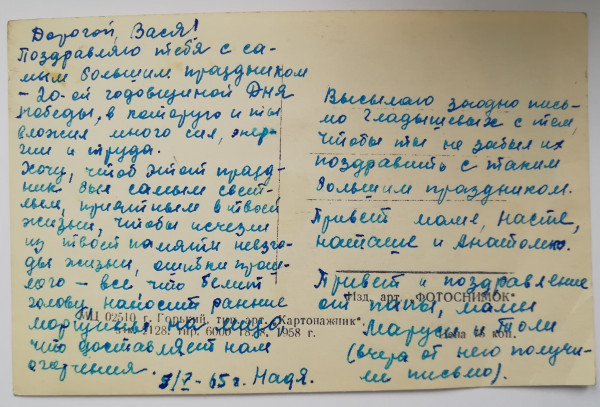 Дорогой, Вася!
Поздравляю тебя с са-
мым большим праздником
- 20-ой годовщиной Дня
победы, в которую и ты
вложил много сил, энер-
гии и труда.
Хочу, чтоб этот празд-
ник был самым свет-
лым, приятным в твоей
жизни, чтобы исчезли
из твоей памяти невзго-
ды жизни, ошибки прош-
лого - все что белит
голову, наносит ранние
морщины на лицо
что доставляет нам
огорчения.
9/V-65 г. Надя.
Высылаю заодно пись-
мо Гладышевых с тем,
чтобы ты не забыл их
поздравить с таким
большим праздником.
Привет маме, Насте,
Наташе и Анатолию.
Привет и поздравление
от папы, мамы
Маруси и Толи
(вчера от него получи-
ли письмо).
Изд. арт. „ФОТОСНИМОК"
Цена 75 коп.
МЦ 02510 г. Горький, тип. арт. „Картонажник",
128. тир. 6000 1958 г.